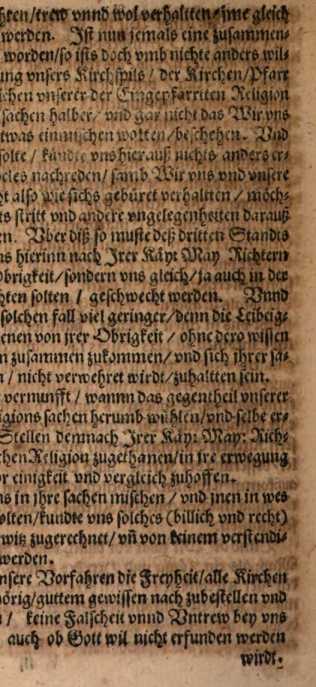 hten/trew vnnd wol verhaltten/jme gleich
werden. Ist nun jemals eine zusammen⸗
worden/so ists doch vmb nichts anders wil⸗
ung vnsers Kirchspils / der Kirchen/Pfarr
ichen vnserer der Eingepfarrten Religion
sachen halber/ vnd gar nicht das Wir vns
twas einmischen wolten/beschehen. Vnd
solte / kündte vns hierauß nichts anders er⸗
beles nachreden/ samb Wir vns vnd vnsere
ht also wie sichs gebüret verhaltten / möch⸗
ts stritt vnd andere vngelegenheiten darauß
en. Vber diß so muste deß dritten Standts
ns hierinn nach Irer Käy: May Richtern
Obrigkeit/sondern vns gleich/ja auch in der
hten solten / geschwecht werden. Vnnd
solchen fall viel geringer/denn die Leibeig⸗
enen von jrer Obrigkeit / ohne dero wissen
n zusammen zukommen/ vnd sich jhrer sa⸗
n / nicht verwehret wirdt/zuhaltten sein.
vernunfft / wannn das gegentheil vnserer
igions sachen herumb wühlen/vnd selbe er⸗
Stellen demnach Irer Käy: May: Rich⸗
chen Religion zugethanen/in jre erwegung
or einigkeit vnd vergleich zuhoffen.
ns in jhre sachen mischen / vnd jnen in wes
olten/kundte vns solches (billich vnd recht)
wiz zugerechnet/ vn̄ von keinem verstendi⸗
werden.
nsere Vorfahren die Freyheit/alle Kirchen
hörig/guttem gewissen nach zubestellen vnd
n / keine Falscheit vnnd Vntrew bey vns
auch ob Gott wil nicht erfunden werden
wirdt.